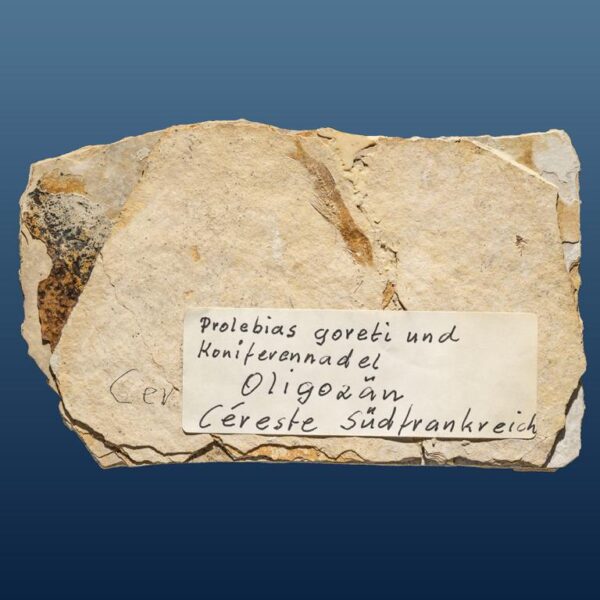 Prolebias goreti und
Koniferennadel
Oligozän
Cer
Céreste Südfrankreich